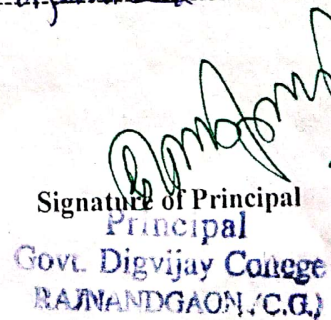 Signature of Principal
Principal
Govt. Digvijay College
RAJNANDGAON (C.G.)